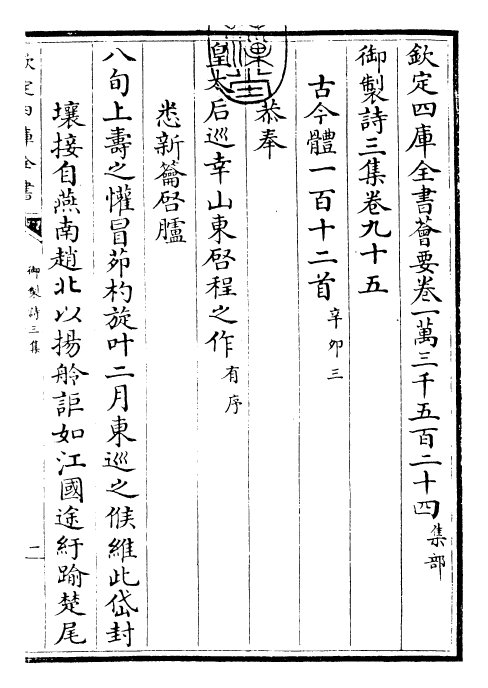 欽定四庫全書薈要卷一萬三千五百二十四 集部
御製詩三集卷九十五
古今體一百十二首 辛卯三
恭奉
皇太后巡幸山東啓程之作 有序
悉新籥啓臚
八旬上壽之懽冒茆杓旋叶二月東巡之候維此岱封
壤接自燕南趙北以揚舲詎如江國途紆踰楚尾
欽定四庫全書
御製詩三集
一